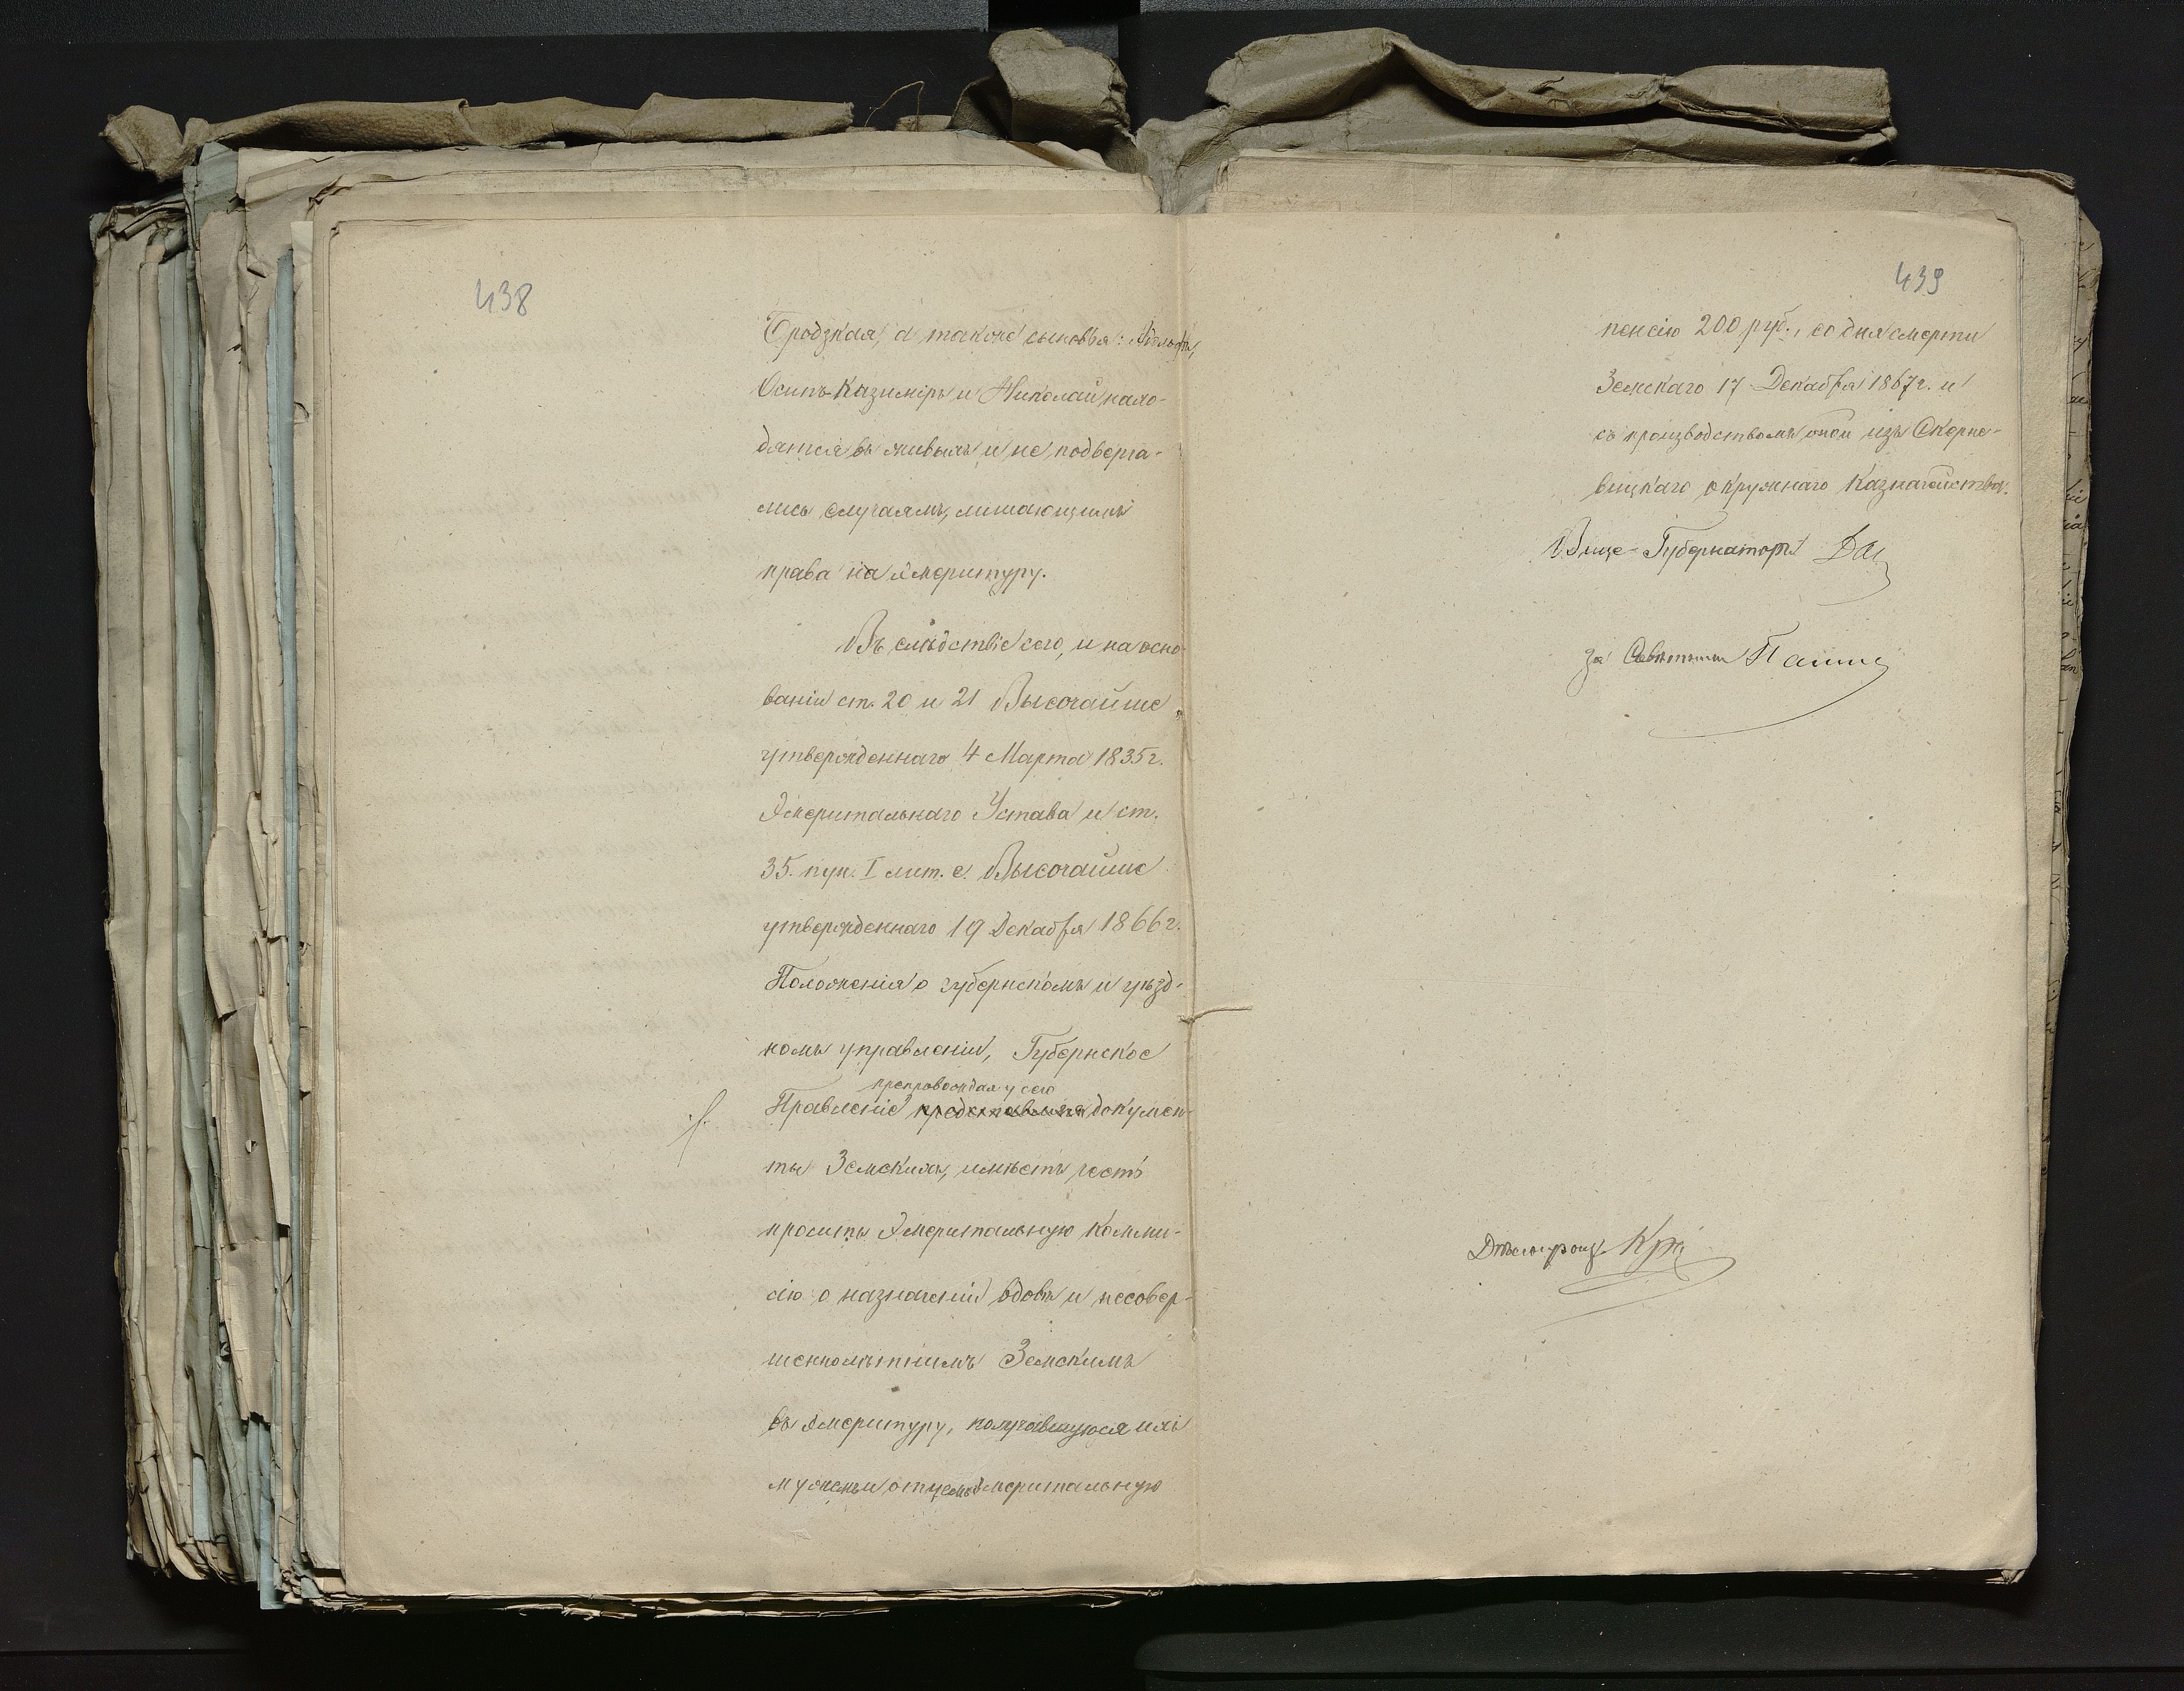 438
Бродзкая, а также сыновья: Адольфъ,
Осипъ-Казиміръ и Николай нахо-
дятся въ живыхъ и не подверга-
лись случаямъ, лишающимъ
права на эмеритуру.
Въ слѣдствіе сего, и на осно-
ваніи ст. 20 и 21 Высочайше
утвержденнаго 4 Марта 1835 г.
Эмеритальнаго Устава и ст.
35. пун. I лит. с. Высочайше
утвержденнаго 19 Декабря 1866 г.
Положенія о губернскомъ и уѣзд-
номъ управленіи, Губернское
препровождая у сего
Правленіе представляя докумен-
ты Земскихъ, имѣетъ честь
просить Эмеритальную Комми-
сію о назначеніи вдовѣ и несовер-
шеннолѣтнимъ Земскимъ
въ эмеритуру, получавшуюся ихъ
мужемъ и отцемъ эмеритальную
439
пенсію 200 руб., со дня смерти
Земскаго 17 Декабря 1867 г. и
съ производствомъ оной изъ Скерне-
вицкаго окружнаго Казначейства.
Вице-Губернаторъ
За Совѣтника
Дѣлопроиз.